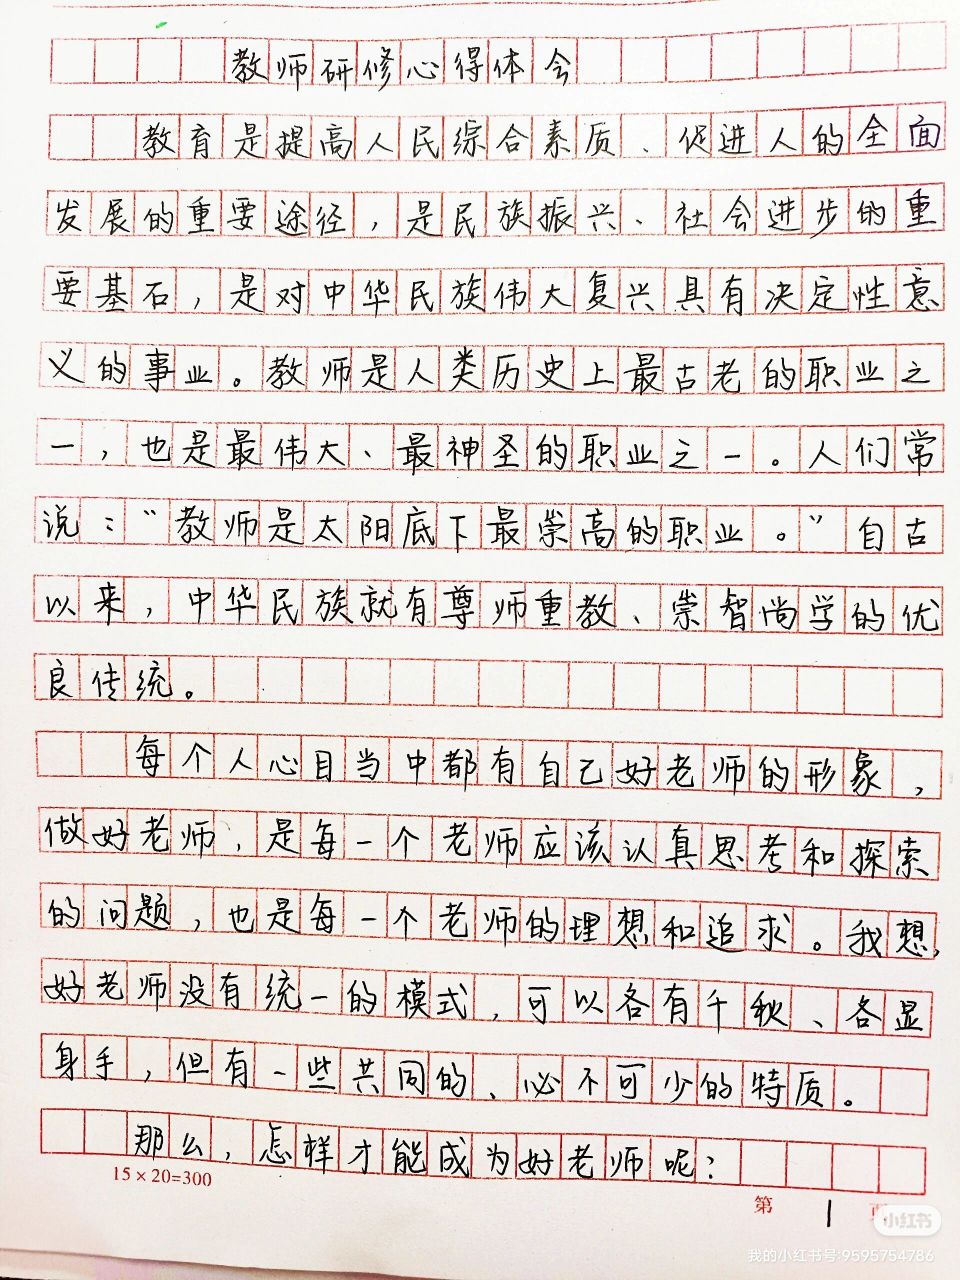 教师研修心得体会
教育是提高人民综合素质、促进人的全面
发展的重要途径，是民族振兴、社会进步的重
要基石，是对中华民族伟大复兴具有决定性意
义的事业。教师是人类历史上最古老的职业之
一，也是最伟大、最神圣的职业之一。人们常
说：“教师是太阳底下最崇高的职业。”自古
以来，中华民族就有尊师重教、崇智尚学的优
良传统。
每个人心目当中都有自己好老师的形象，
做好老师，是每一个老师应该认真思考和探索
的问题，也是每一个老师的理想和追求。我想，
好老师没有统一的模式，可以各有千秋、各显
身手，但有一些共同的、必不可少的特质。
那么，怎样才能成为好老师呢？
15×20=300
第 1 页
小红书
我的小红书号:9595754786